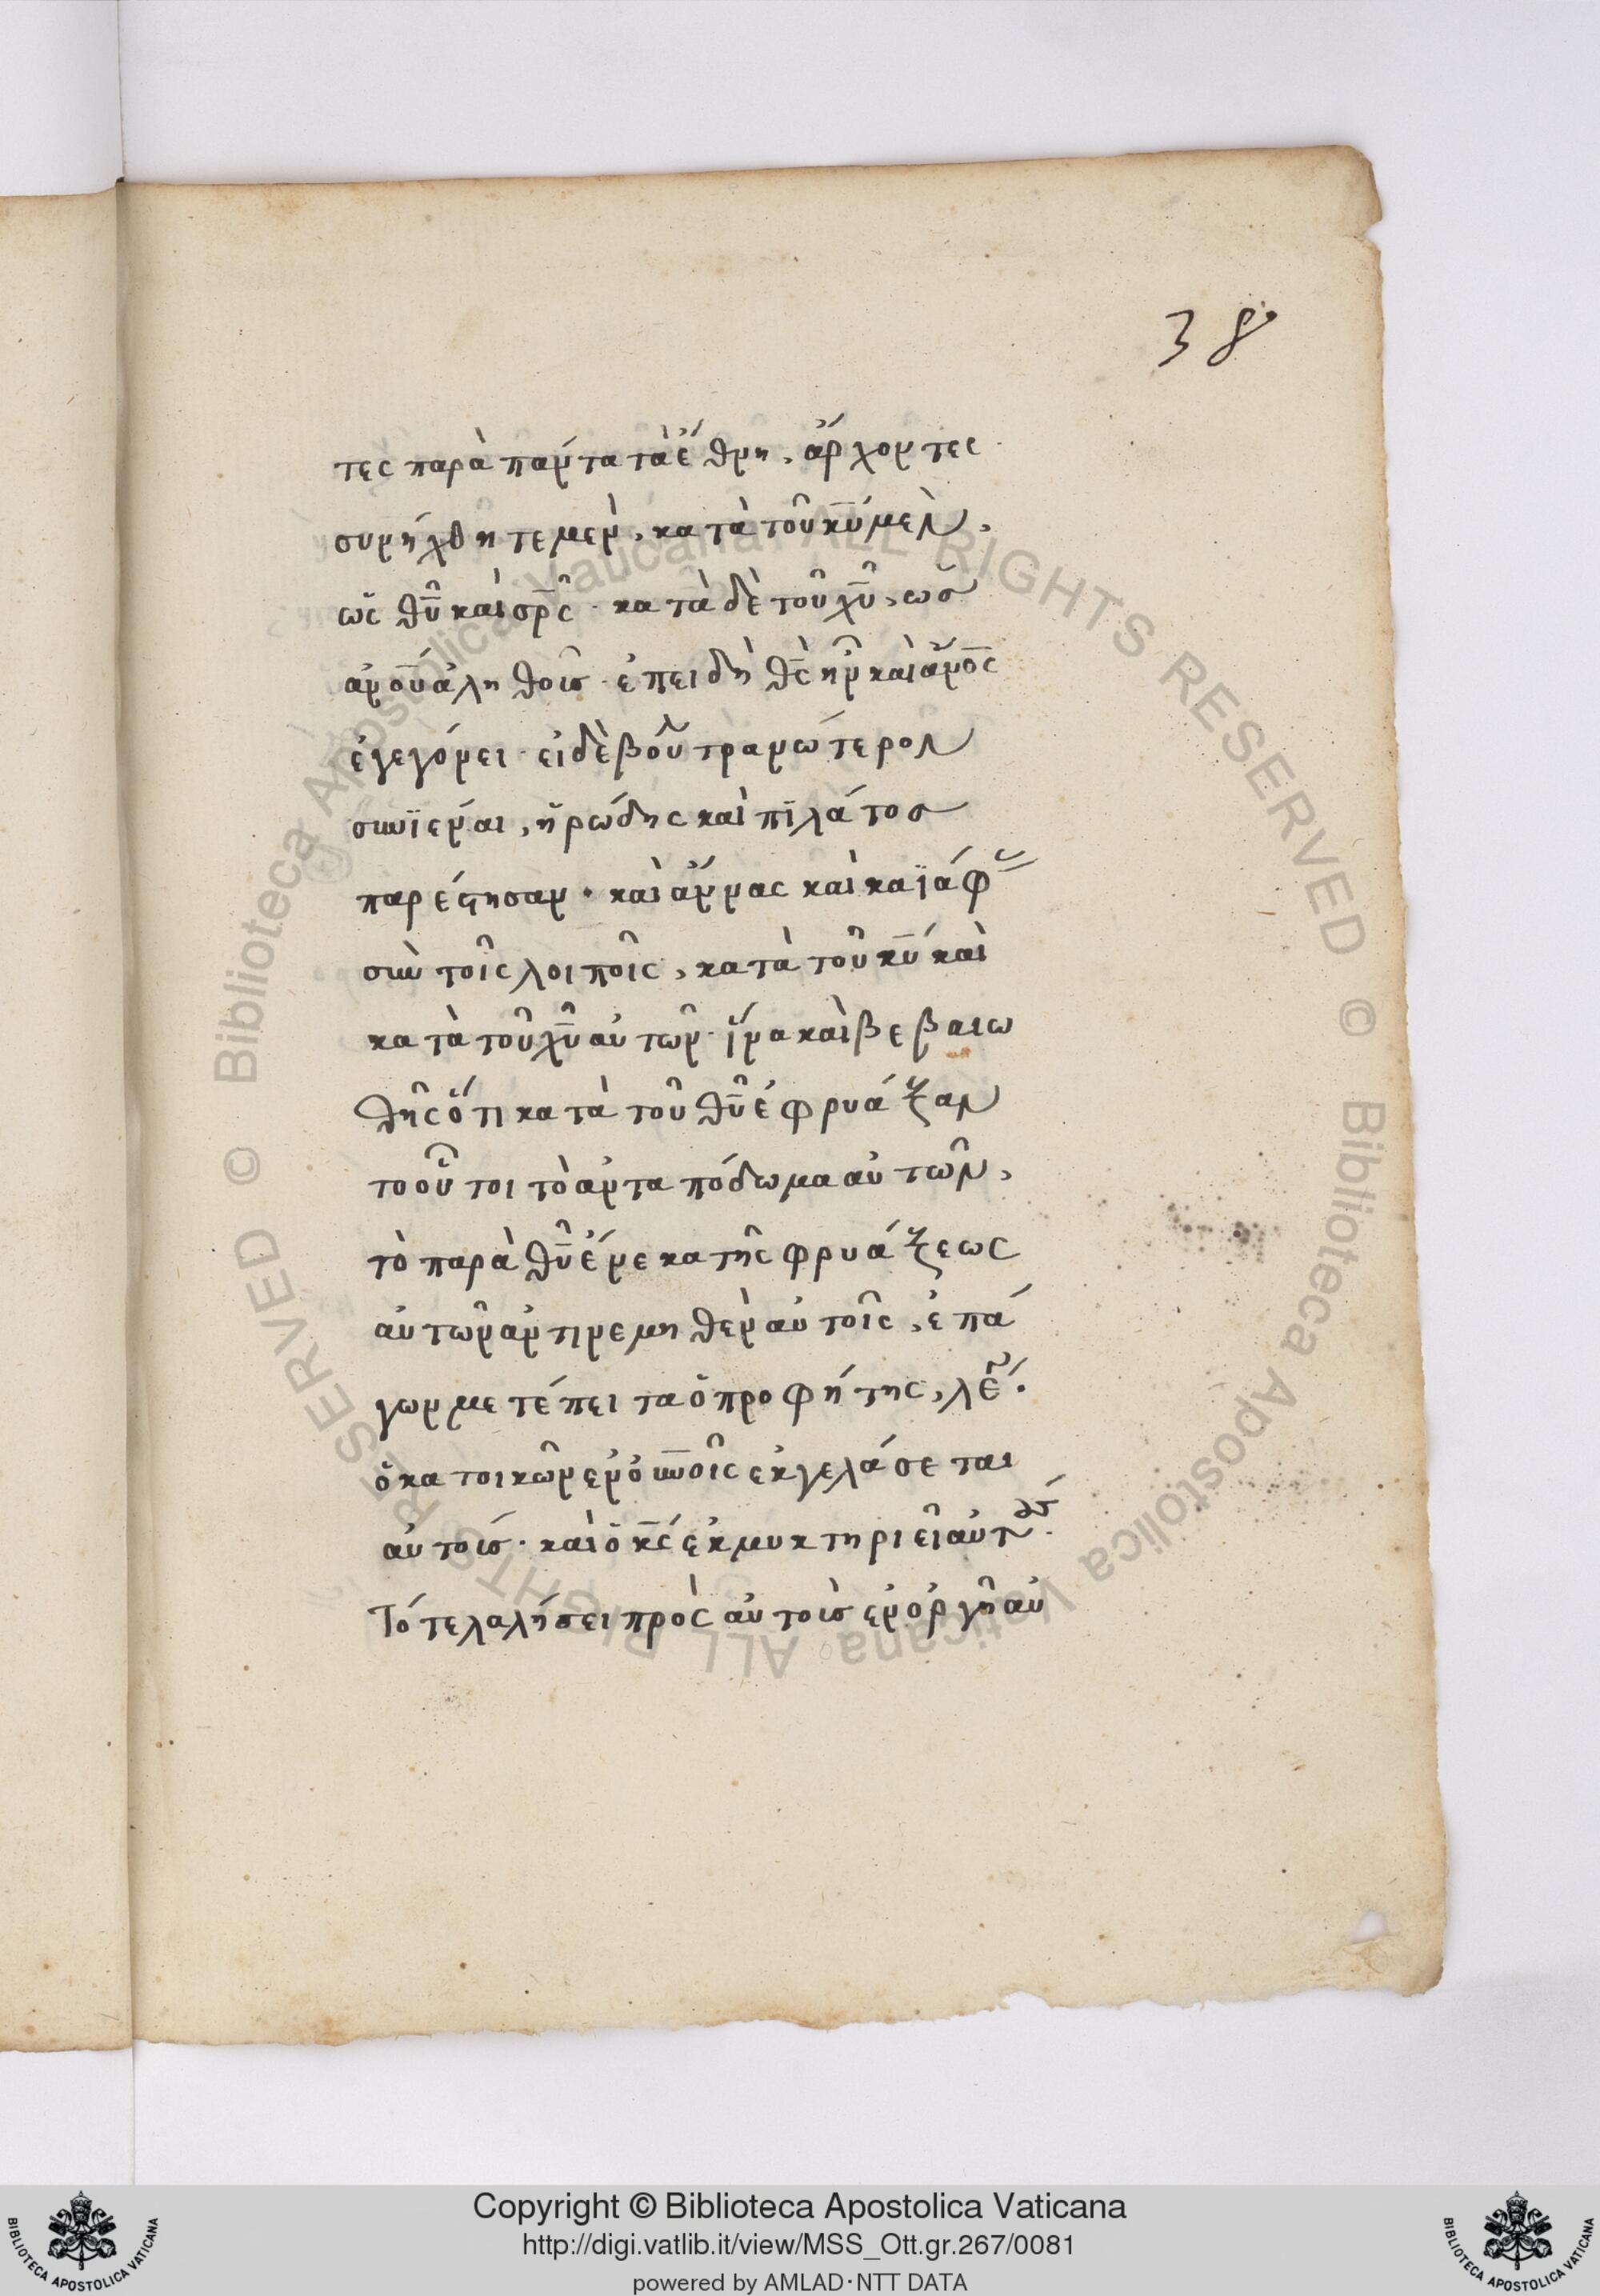 38
τες παρὰ πάντα τὰ ἔθνη, ἄρχοντες
συνήχθητε μὲν, κατὰ τοῦ κ̅υ̅ μὲν,
ὡς θ̅υ̅ καὶ σ̅ρ̅ς̅· κατὰ δὲ τοῦ χ̅υ̅, ὡσ
ἀν̅ο̅υ̅ ἀληθοῦς· ἐπειδὴ θ̅ς̅ ἦν καὶ ἄν̅ο̅ς̅
ἐγεγόνει· εἰ δὲ βούλει τρανώτερον
συνϊέναι, ἡρώδης καὶ πϊλάτος
παρέστησαν· καὶ ἄννας καὶ καϊάφας
σὺν τοῖς λοιποῖς, κατὰ τοῦ κ̅υ̅ καὶ
κατὰ τοῦ χ̅υ̅ αὐτῶν· ἵνα καὶ βεβαιω
θῇς ὅτι κατὰ τοῦ θ̅υ̅ ἐφρυάξαν
το οὗτοι τὸ ἀνταπόδωμα αὐτῶν,
τὸ παρὰ θ̅υ̅ ἕνεκα τῆς φρυάξεως
αὐτῶν ἀντινεμηθὲν αὐτοῖς, ἐπά
γων μετέπειτα ὁ προφήτης, λέγει·
ὁ κατοικῶν ἐν ο̅υ̅νοῖς ἐκγελάσεται
αὐτούς· καὶ ὁ κ̅ς̅ ἐκμυκτηριεῖ αὐτούς·
Τότε λαλήσει πρὸς αὐτοὺς ἐν ὀργῇ αὐ
Copyright © Biblioteca Apostolica Vaticana
http://digi.vatlib.it/view/MSS_Ott.gr.267/0081
powered by AMLAD·NTT DATA
BIBLIOTECA APOSTOLICA VATICANA
BIBLIOTECA APOSTOLICA VATICANA
© Biblioteca Apostolica Vaticana. ALL RIGHTS RESERVED
© Biblioteca Apostolica Vaticana. ALL RIGHTS RESERVED